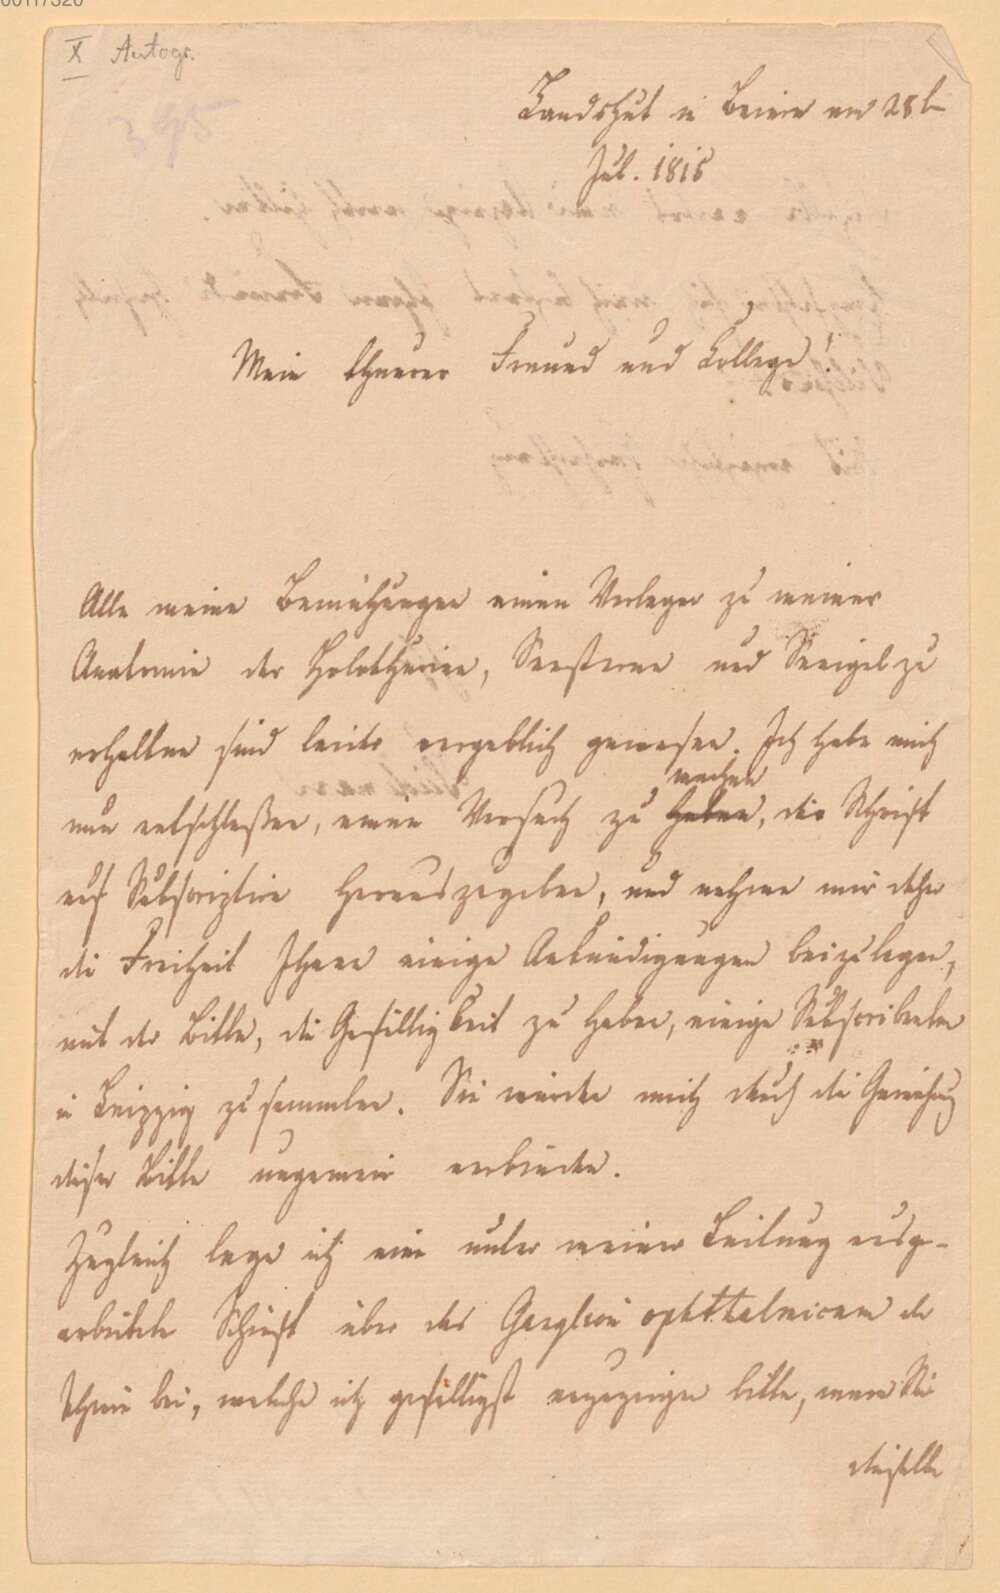 00117320
X Autogr.
395
Landshut in Baiern am 28t
Jul. 1815
Mein theurer Freund und College!
Alle meine Bemühungen einen Verleger zu meiner
Anatomie der Holothurien, Seesterne und Seeigel zu
erhalten sind leider vergeblich gewesen. Ich habe mich
nun entschloßen, einen Versuch zu haben machen, die Schrift
auf Subscription herauszugeben, und nehme mir daher
die Freiheit Ihnen einige Ankündigungen beizulegen,
mit der Bitte, die Gefälligkeit zu haben, einige Subscribenten
in Leipzig zu sammlen. Sie würden mich durch die Gewährung
dieser Bitte ungemein verbinden.
Zugleich lege ich eine unter meiner Leitung ausge-
arbeitete Schrift über das Ganglion ophthalmicum der
Thiere bei, welche ich gefälligst anzuzeigen bitte, wenn Sie
dieselbe